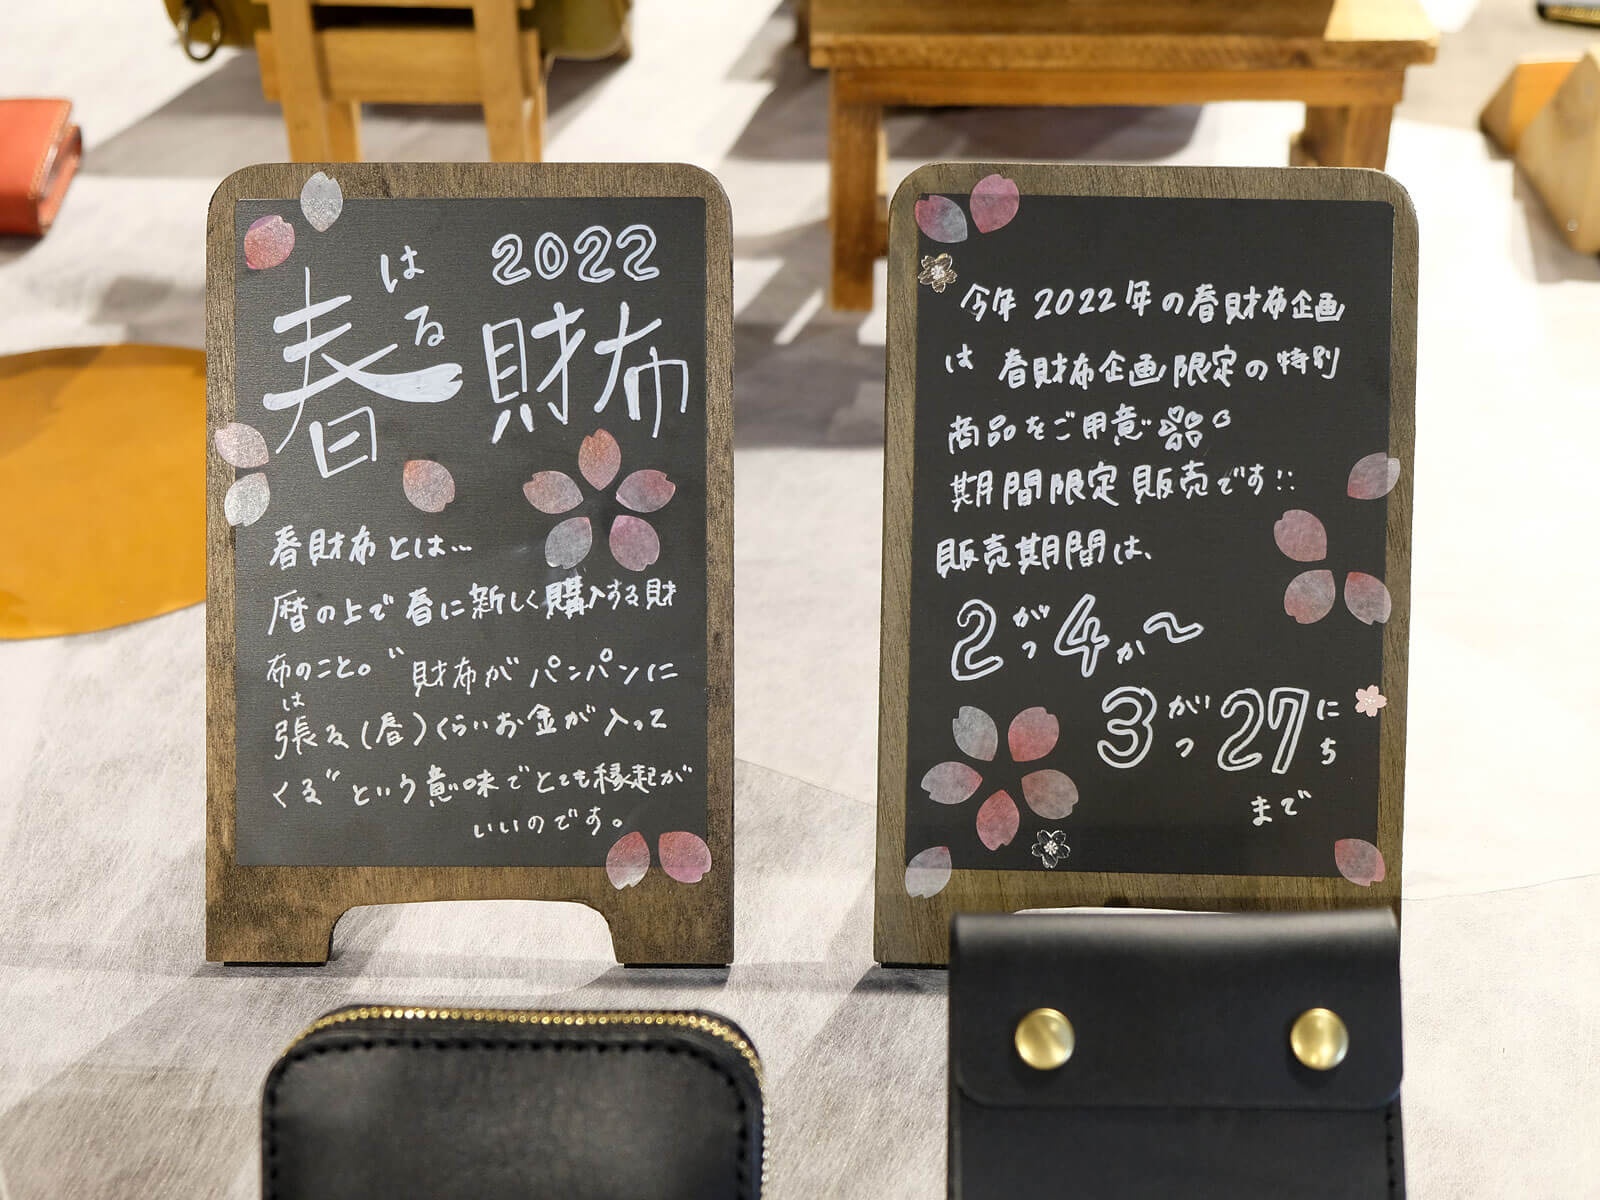 2022
春財布
はる
春財布とは…
暦の上で春に新しく購入する財
布のこと。〝財布がパンパンに
は
張る(春)くらいお金が入って
くる〟という意味でとても縁起が
いいのです。
今年2022年の春財布企画
は 春財布企画限定の特別
商品をご用意
期間限定販売です!!
販売期間は、
2がつ4か〜
3がつ27にち
まで